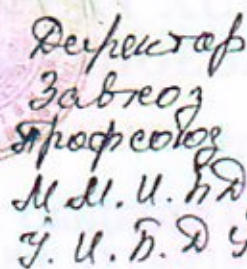 Директор
Завхоз
Профсоюз
М.М.И.БД
У.И.Б.Д У